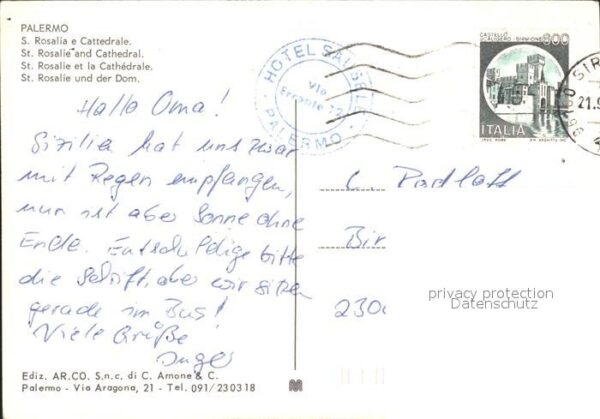 PALERMO
S. Rosalia e Cattedrale.
St. Rosalie and Cathedral.
St. Rosalie et la Cathédrale.
St. Rosalie und der Dom.
Hallo Oma!
Sizilia hat uns zwar
mit Regen empfangen,
nun ist aber Sonne ohne
Ende. Entschuldige bitte
die Schrift, aber wir sitzen
gerade im Bus!
Viele Grüße
Ediz. AR.CO. S.n.c. di C. Arnone & C.
Palermo - Via Aragona, 21 - Tel. 091/230318
HOTEL
Via
PALERMO
CASTELLO
SCALIGERO - SIRMIONE
800
ITALIA
SIR
21.9
Bir
230
privacy protection
Datenschutz